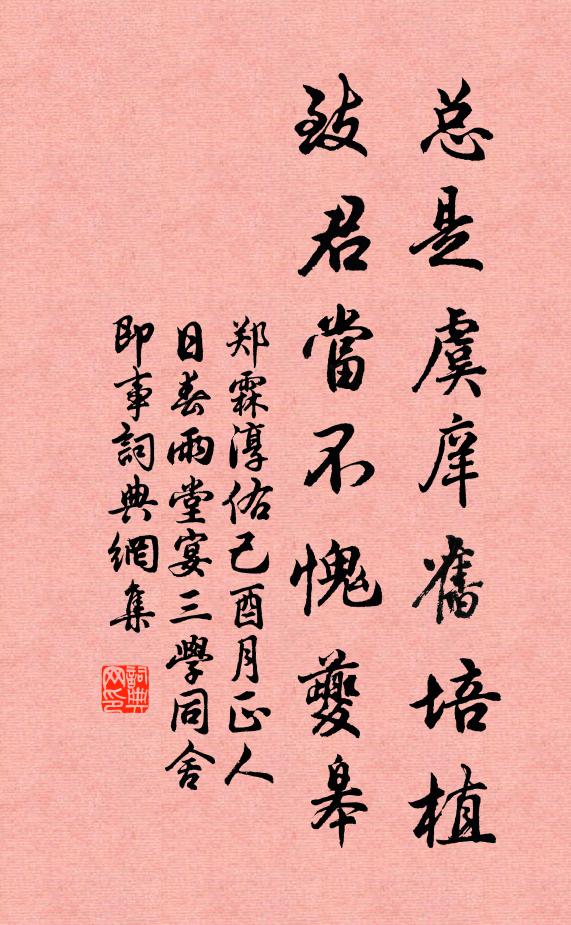 总是虞庠舊培植
致君當不愧夔皋
郑霖淳佑己酉月正人
日春雨堂宴三學同舍
即事詞典網集
詞典
网印